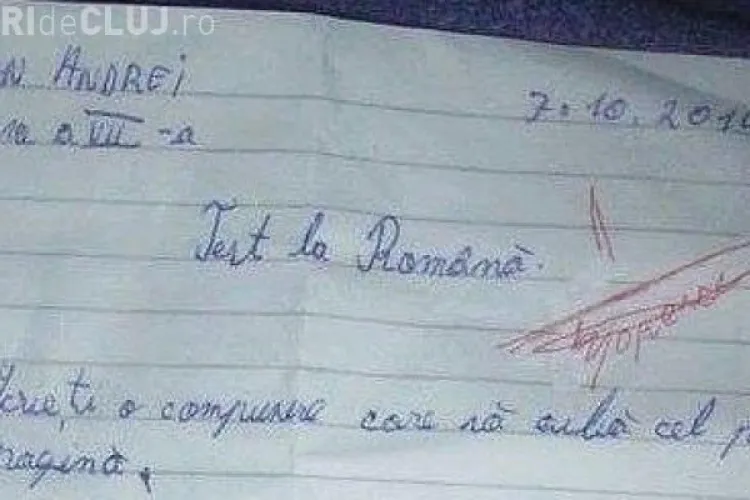 RIdeCLUJ.ro
N ANDREI
7.10.201
a VII-a
Test la Română.
Scrieți o compunere care să aibă cel p
pagină.